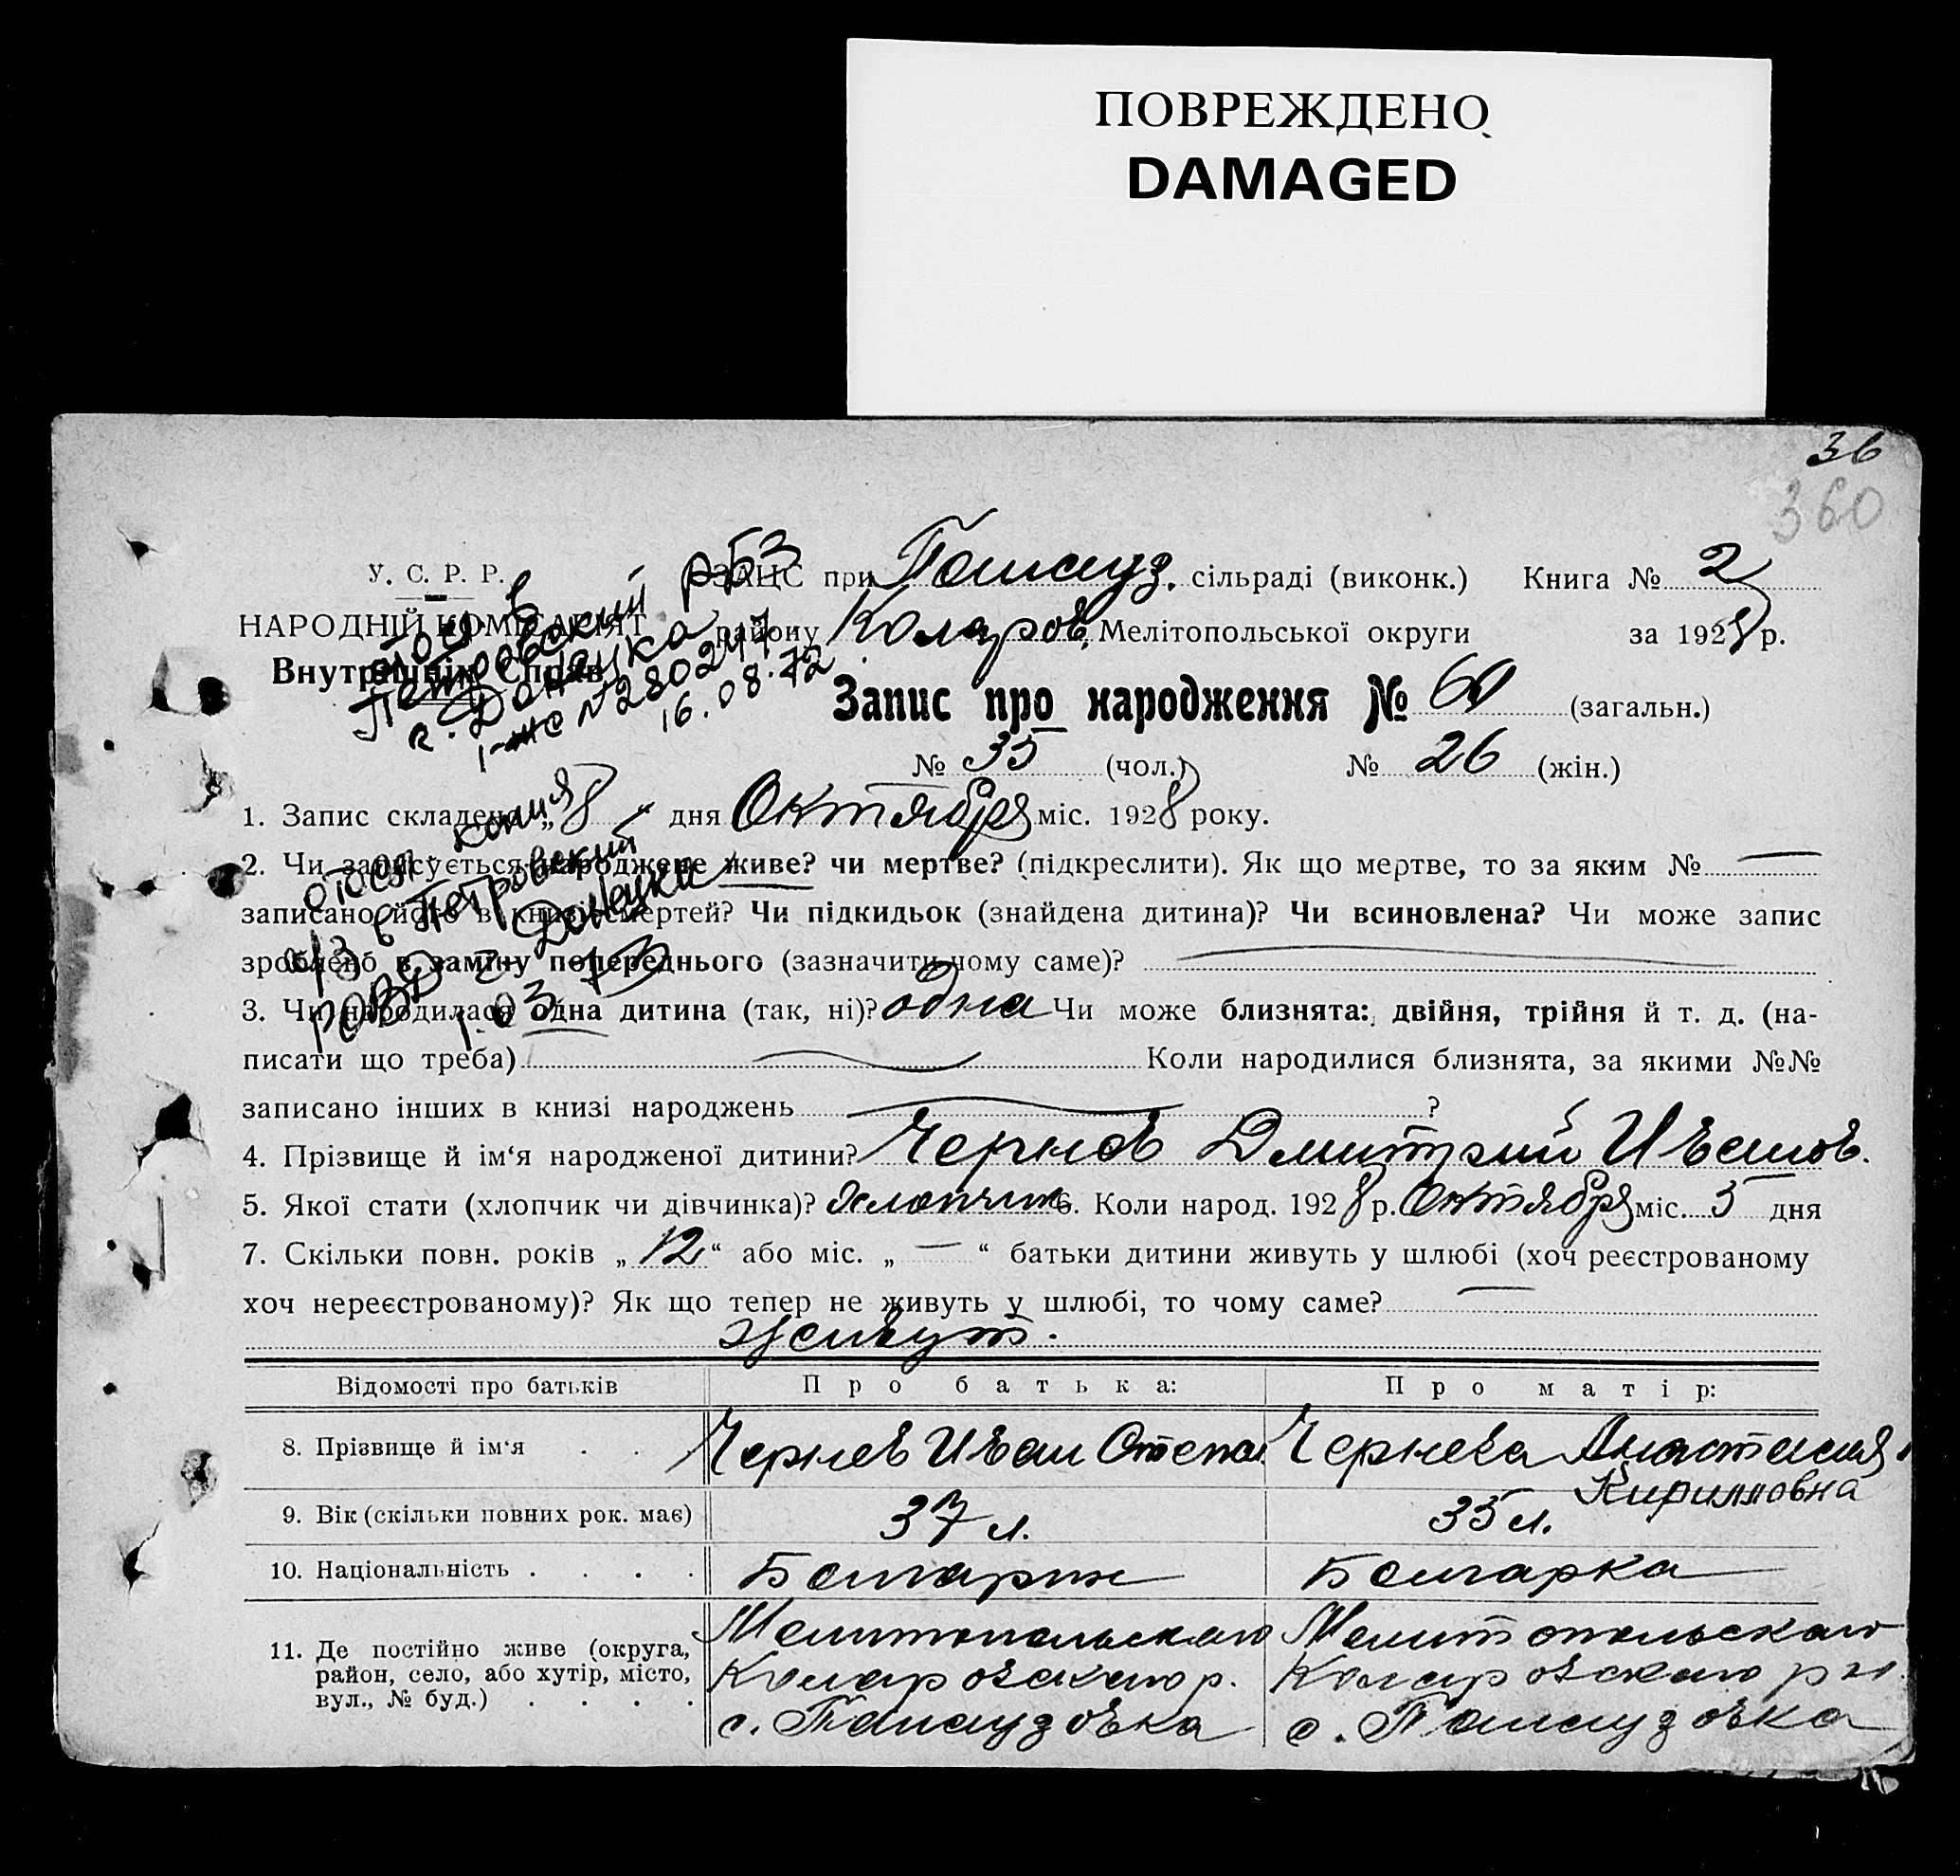 ПОВРЕЖДЕНО
DAMAGED
36
360
У. С. Р. Р.
НАРОДНІЙ КОМІСАРІЯТ
Внутрішніх Справ
ЗАЦС при сільраді (виконк.) Книга № 2
району Коларов. Мелітопольської округи за 1928 р.
Петровский
г. Донецка
1-жс № 280247
16.08.72
Запис про народження № 60 (загальн.)
№ 35 (чол.) № 26 (жін.)
1. Запис складено „8“ дня Октября міс. 1928 року.
копия
2. Чи записується народжене живе? чи мертве? (підкреслити). Як що мертве, то за яким № —
Петровский
записано його в книзі смертей? Чи підкидьок (знайдена дитина)? Чи всиновлена? Чи може запис
Донецка
зроблено в заміну попереднього (зазначити чому саме)?
РОВД
1.03.73
3. Чи народилася одна дитина (так, ні)? одна Чи може близнята: двійня, трійня й т. д. (на-
писати що треба) Коли народилися близнята, за якими №№
записано інших в книзі народжень ?
4. Прізвище й ім‘я народженої дитини? Чернев Дмитрий Иванов.
5. Якої стати (хлопчик чи дівчинка)? Хлопчик 6. Коли народ. 1928 р. Октября міс. 5 дня
7. Скільки повн. років „12“ або міс. „—“ батьки дитини живуть у шлюбі (хоч реєстрованому
хоч нереєстрованому)? Як що тепер не живуть у шлюбі, то чому саме? —
живут.
Відомості про батьків Про батька: Про матір:
8. Прізвище й ім‘я . . Чернев Иван Степан. Чернева Анастасия
Кирилловна
9. Вік (скільки повних рок. має) 37 л. 35 л.
10. Національність . . . . Болгарин Болгарка
11. Де постійно живе (округа, район, село, або хутір, місто, вул., № буд.) . . . .
Мелитопольскаго Мелитопольскаго
Коларовскаго р. Коларовскаго р-н.
с. Палаузовка с. Палаузовка